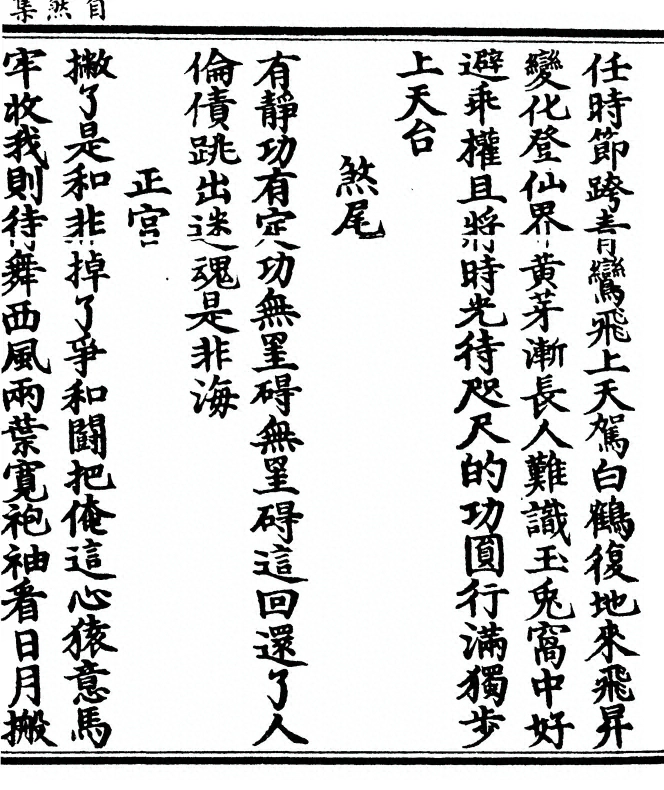 自然集
任時節跨青鸞飛上天駕白鶴復地來飛昇
變化登仙界黃芽漸長人難識玉兔窩中好
避乖權且將時光待咫尺的功圓行滿獨步
上天台
煞尾
有靜功有定功無罣碍無罣碍這回還了人
倫債跳出迷魂是非海
正宮
撇了是和非掉了爭和鬪把俺這心猿意馬
牢收我則待舞西風兩葉寬袍袖看日月搬